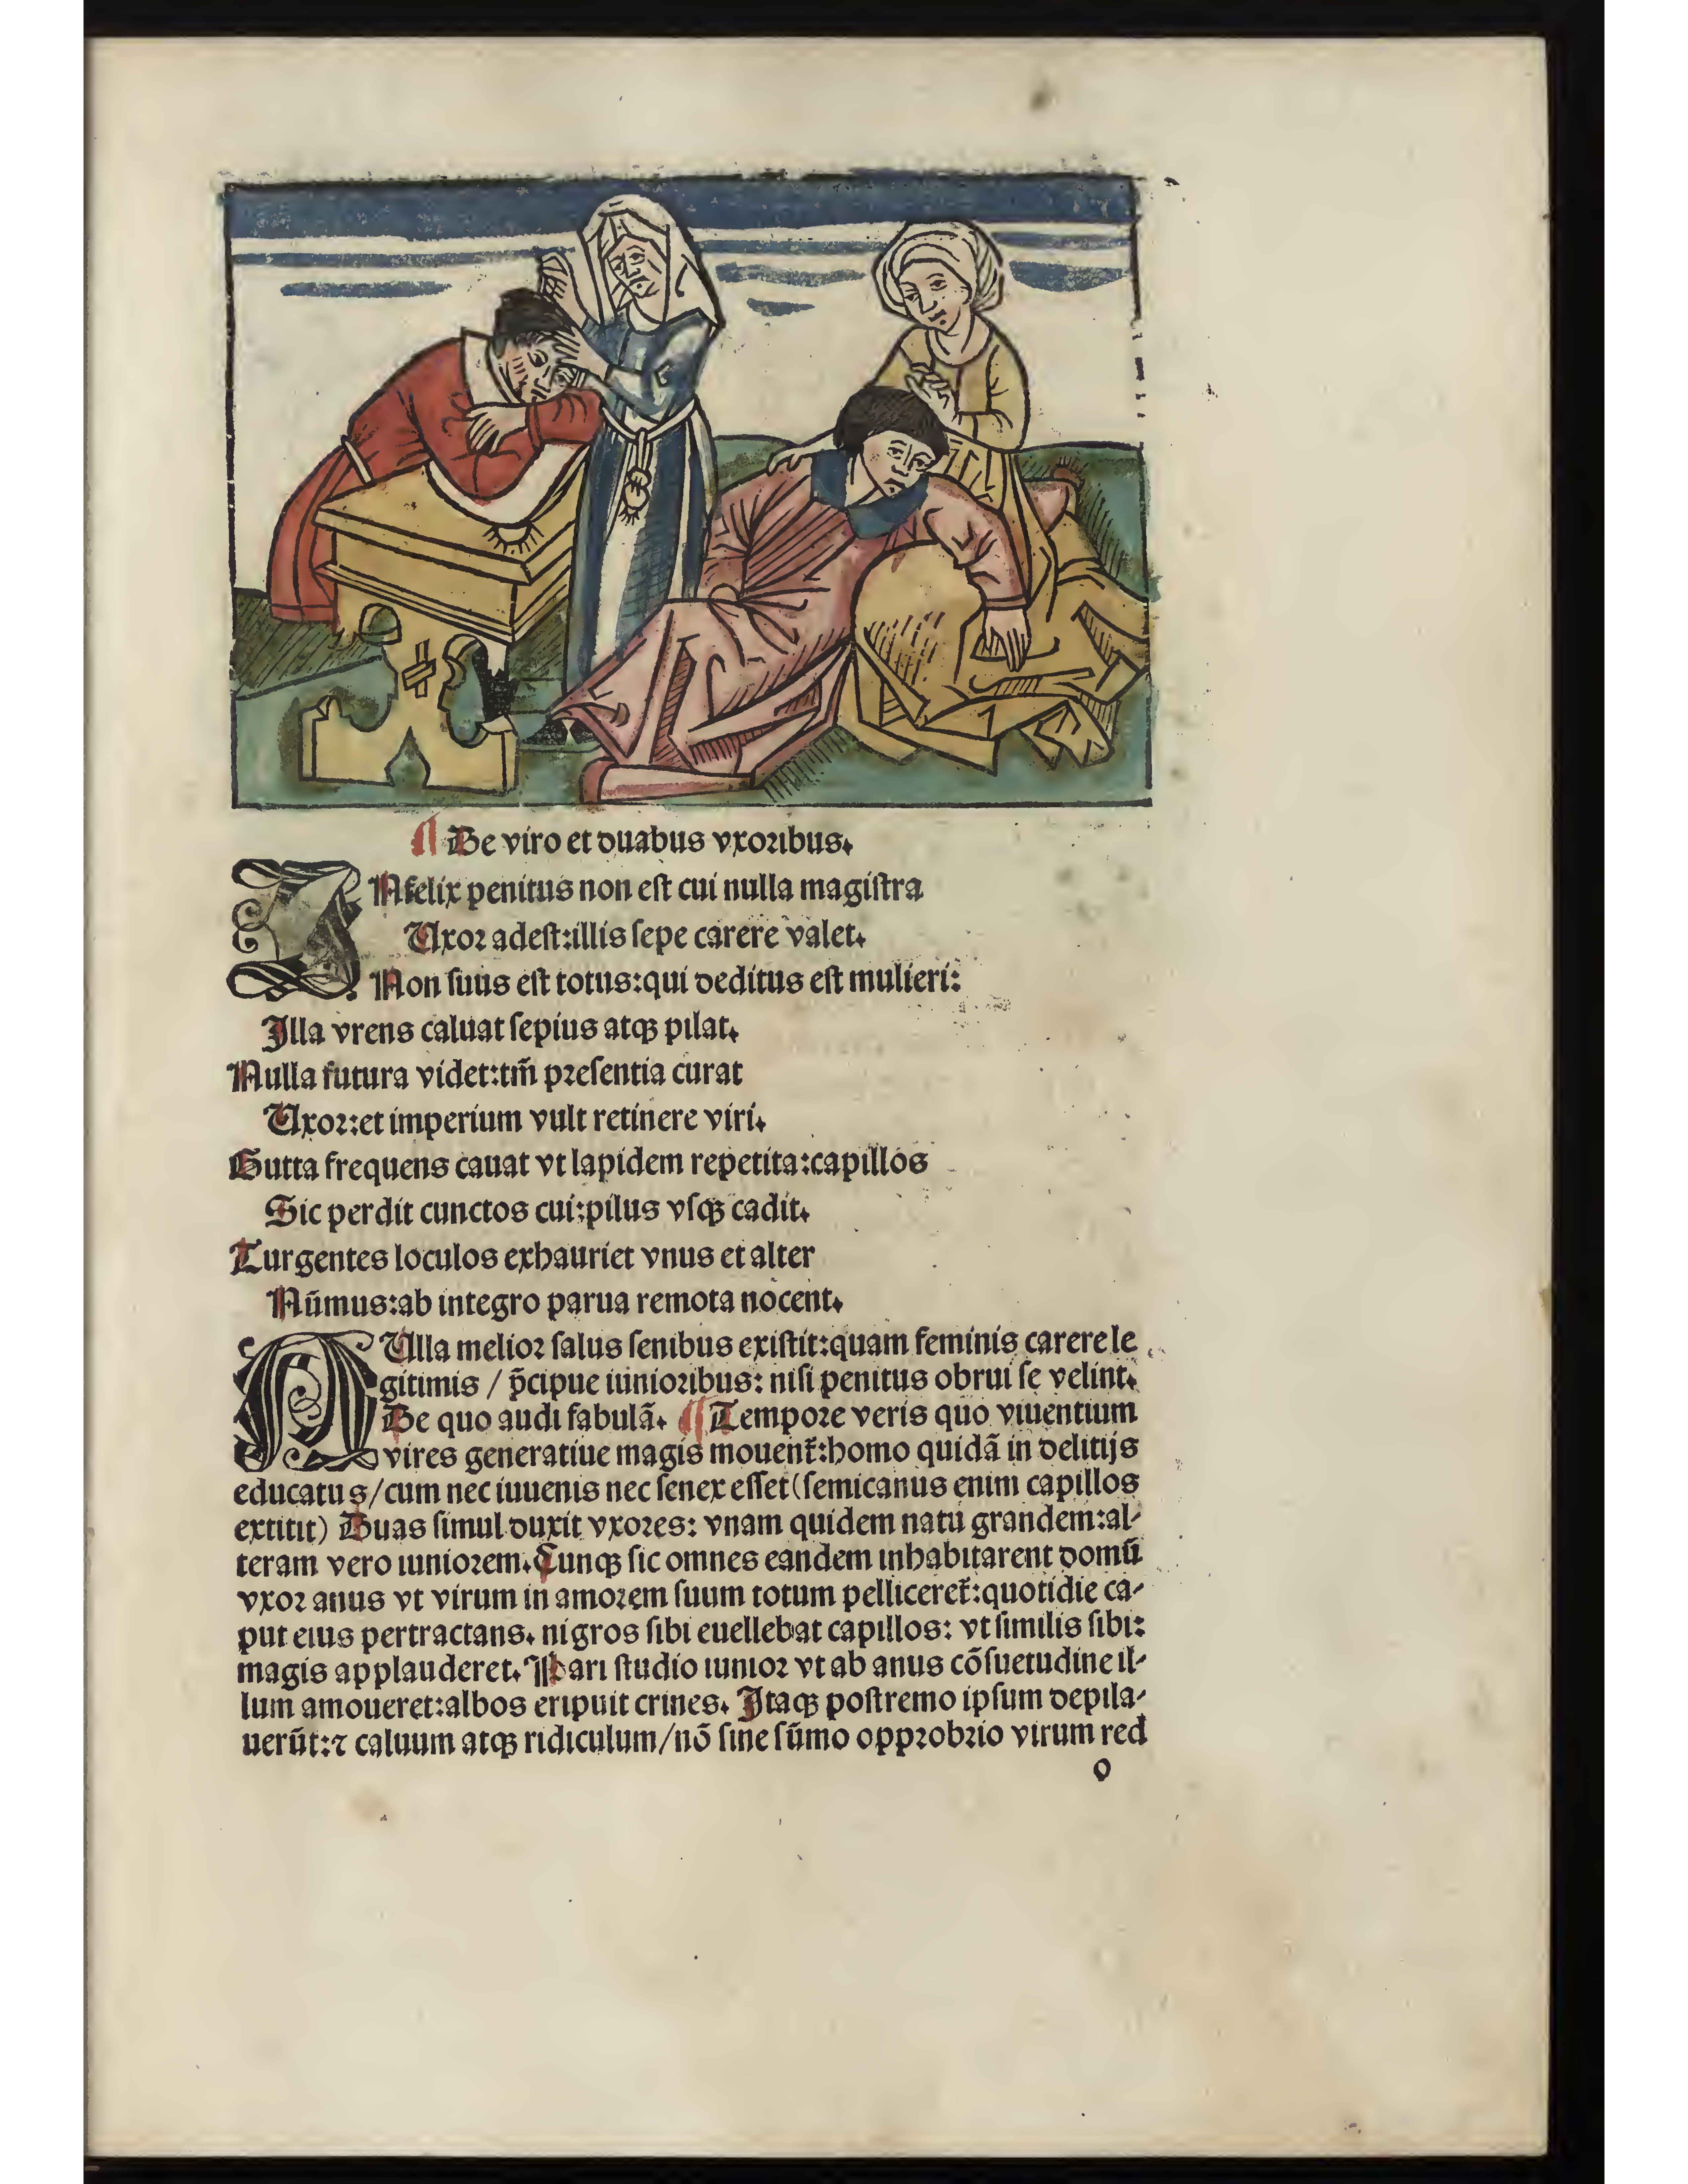 ¶ De viro et duabus vxoribus.
INfelix penitus non est cui nulla magistra
Uxor adest:illis sepe carere valet.
Non suus est totus:qui deditus est mulieri:
Illa vrens caluat sepius atqꝫ pilat.
Nulla futura videt:tm̄ presentia curat
Uxor:et imperium vult retinere viri.
Gutta frequens cauat vt lapidem repetita:capillos
Sic perdit cunctos cui:pilus vsqꝫ cadit.
Turgentes loculos exhauriet vnus et alter
Nūmus:ab integro parua remota nocent.
NUlla melior salus senibus existit:quam feminis carere le
gitimis / p̄cipue iunioribus: nisi penitus obrui se velint.
De quo audi fabulā. ¶ Tempore veris quo viuentium
vires generatiue magis mouent̄:homo quidā in delitijs
educatus/cum nec iuuenis nec senex esset(semicanus enim capillos
extitit) Duas simul duxit vxores: vnam quidem natu grandem:al-
teram vero iuniorem. Cunqꝫ sic omnes eandem inhabitarent domū
vxor anus vt virum in amorem suum totum pelliceret̄:quotidie ca-
put eius pertractans. nigros sibi euellebat capillos: vt similis sibi:
magis applauderet. Pari studio iunior vt ab anus cōsuetudine il-
lum amoueret:albos eripuit crines. Itaqꝫ postremo ipsum depila-
uerūt:⁊ caluum atqꝫ ridiculum/nō sine sūmo opprobrio virum red
o